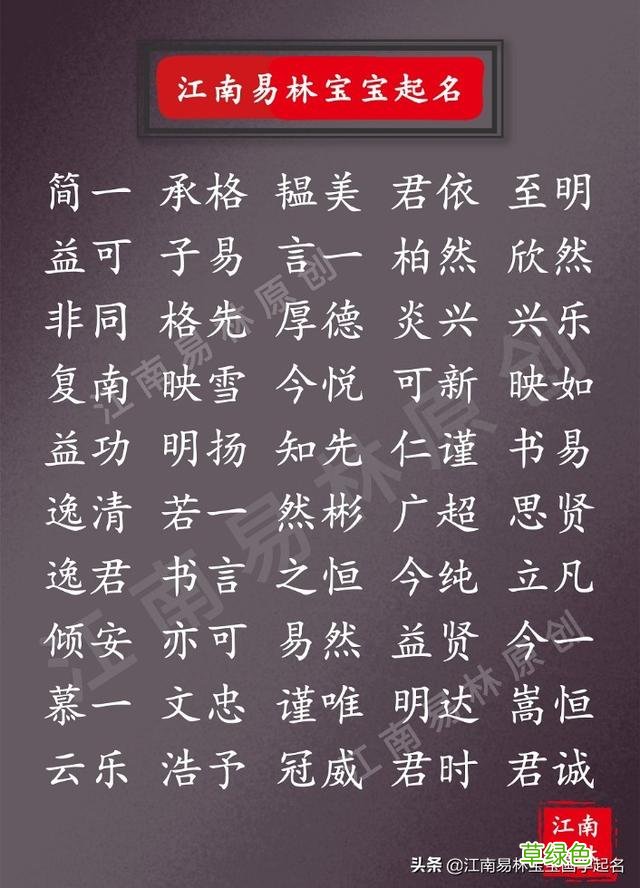 江南易林宝宝起名
简一 承格 韫美 君依 至明
益可 子易 言一 柏然 欣然
非同 格先 厚德 炎兴 兴乐
复南 映雪 今悦 可新 映如
益功 明扬 知先 仁谨 书易
逸清 若一 然彬 广超 思贤
逸君 书言 之恒 今纯 立凡
倾安 亦可 易然 益贤 今一
慕一 文忠 谨唯 明达 嵩恒
云乐 浩予 冠威 君时 君诚
江南易林原创
江南易林原创
江南易林原创
江南
草绿色
头条 @江南易林宝宝国学起名